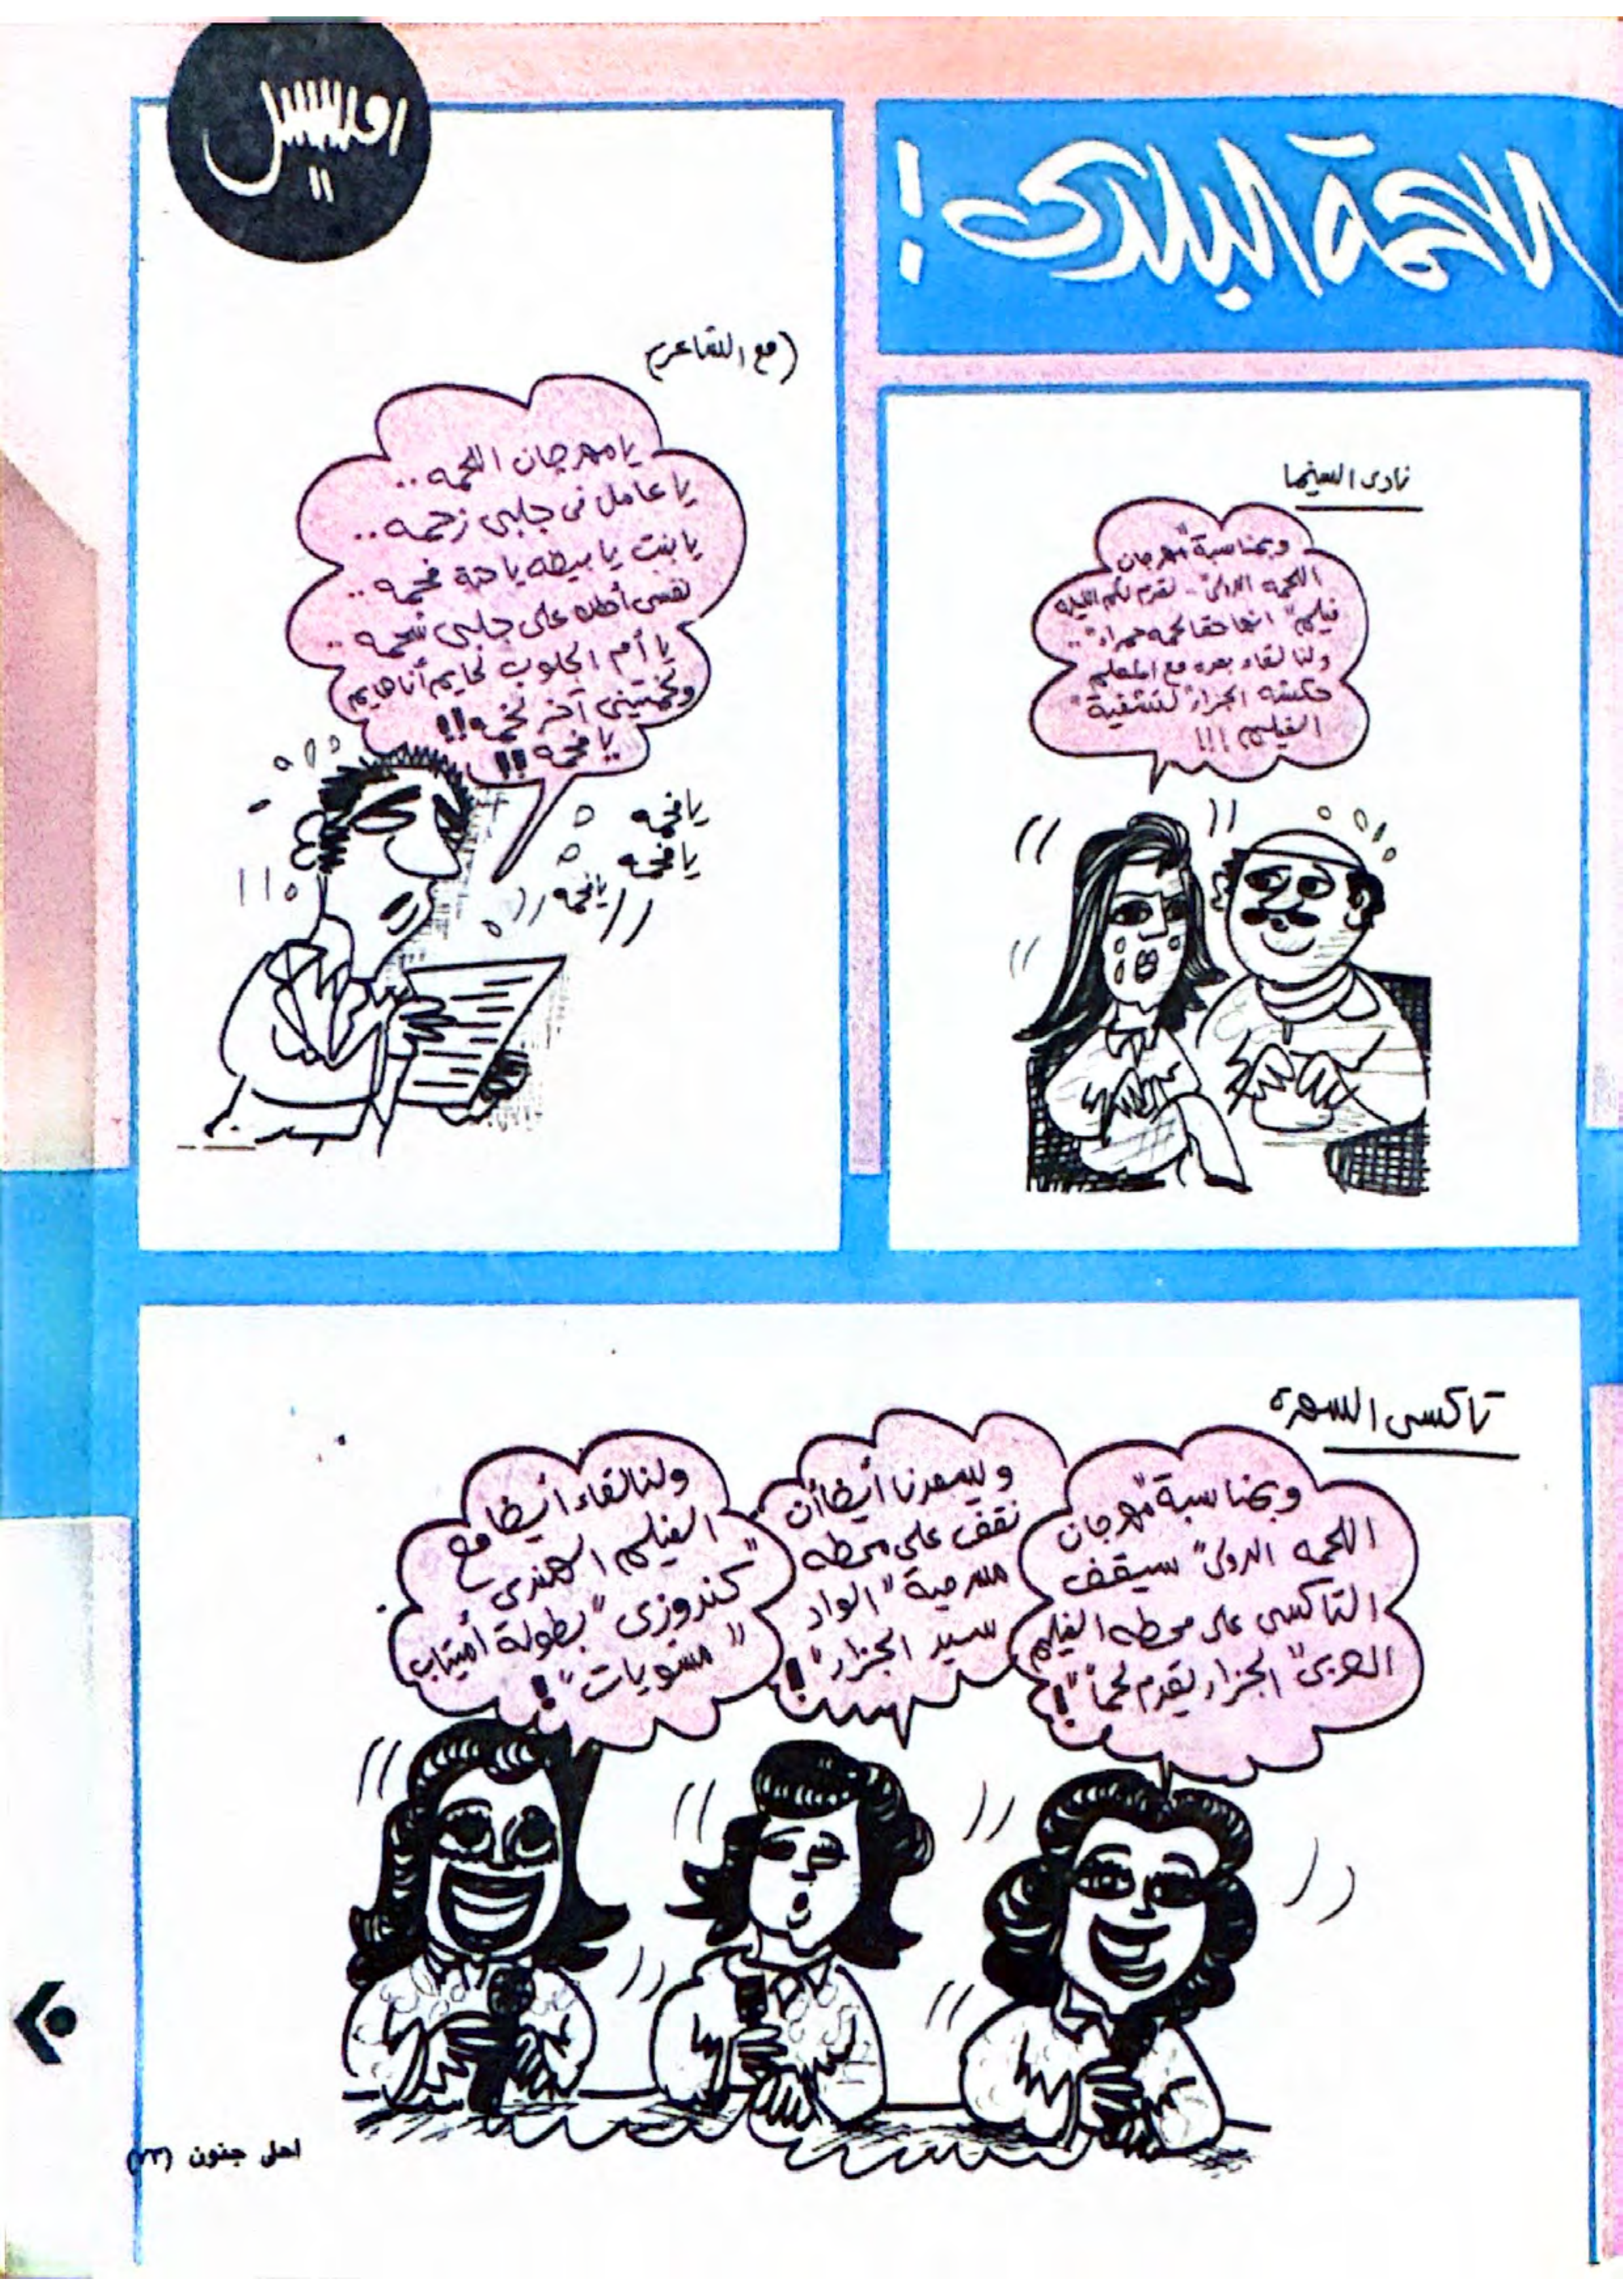 اللحمة البلدى !
نادى السينما
وبمناسبة "مهرجان
اللحمه الدولى" .. نقدم لكم الليله
فيلم "انها حقا لحمه حمراء" ..
ولنا لقاء بعده مع المعلم
حكشه الجزار "لتشفية"
الفيلم !!!
(مع الشاعر)
يا مهرجان اللحمه ..
يا عامل فى جلبى زحمه ..
يا بنت يا بيضه يا حتة فحمه ..
نفسى أحطك على جلبى شحمه ..
يا أم الجلوب نحايم أنا هايم
يا فحمه !!
يا فحمه
يا فحمه
يا فحمه
تاكسى السهرة
وبمناسبة "مهرجان
اللحمه الدولى" سيقف
التاكسى على محطه الفيلم
العربى "الجزار يقدم لحماً" !
ويسعدنا أيضا أن
نقف على محطه
مسرحية "الواد
سيد الجزار" !
ولنا لقاء أيضا مع
الفيلم الهندى
"كندوزى" بطولة أميتاب
"مشويات" !
احلى جنون (٢٣)